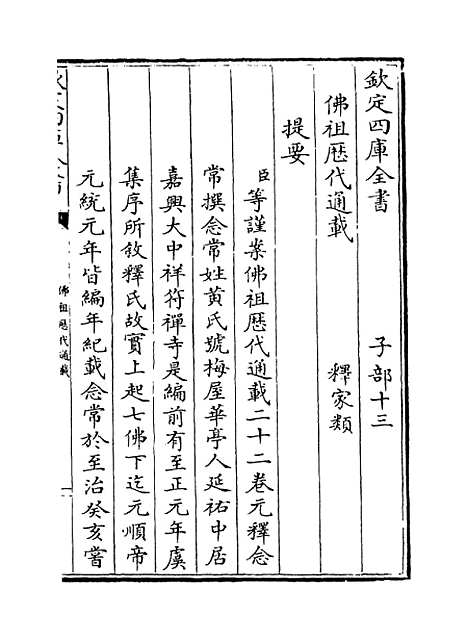 欽定四庫全書　子部十三
佛祖歷代通載　釋家類
提要
臣等謹案佛祖歷代通載二十二卷元釋念
常撰念常姓黄氏號梅屋華亭人延祐中居
嘉興大中祥符禪寺是編前有至正元年虞
集序所敘釋氏故實上起七佛下迄元順帝
元統元年皆編年紀載念常於至治癸亥嘗
佛祖歷代通載
一